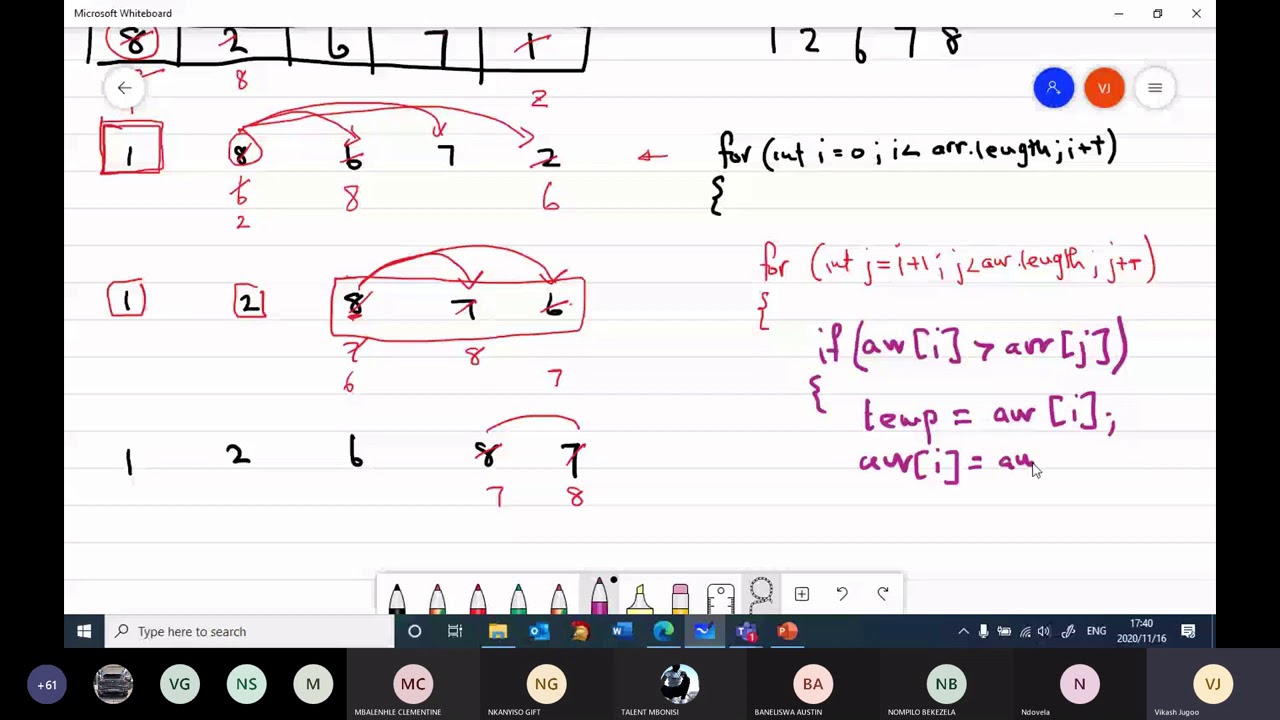 Microsoft Whiteboard
8 2 6 7 1
1 2 6 7 8
8
2
VJ
1 8 6 7 2
for (int i=0; i< arr.length; i++)
6 8 6
{
2
for (int j=i+1; j<arr.length; j++)
1 2 8 7 6
{
if (arr[i] > arr[j])
7 8
6 7
{
temp = arr[i];
1 2 6 8 7
arr[i] = arr
7 8
Type here to search
ENG
17:40
2020/11/16
+61
VG
NS
M
MC
NG
BA
NB
N
VJ
MBALENHLE CLEMENTINE
NKANYISO GIFT
TALENT MBONISI
BANELISWA AUSTIN
NOMPILO BEKEZELA
Ndovela
Vikash Jugoo